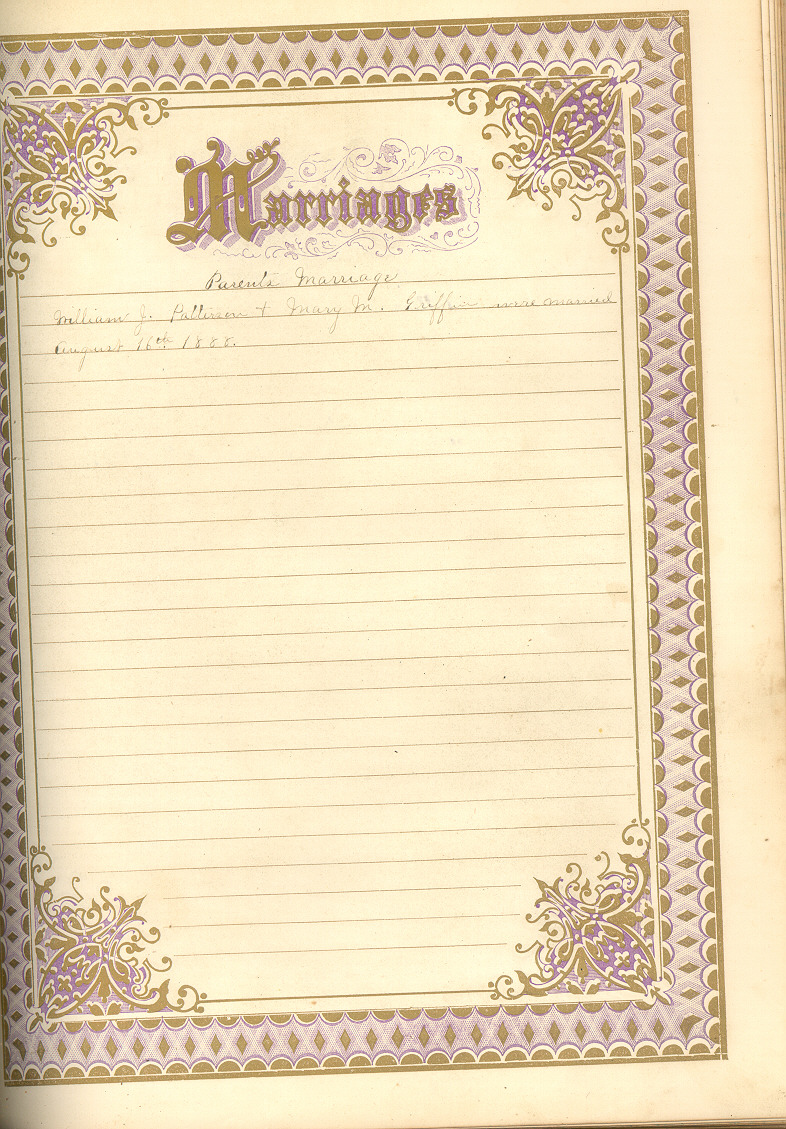 Marriages
Parents Marriage
William J. Patterson + Mary M. Griffin were married
August 16th 1888.